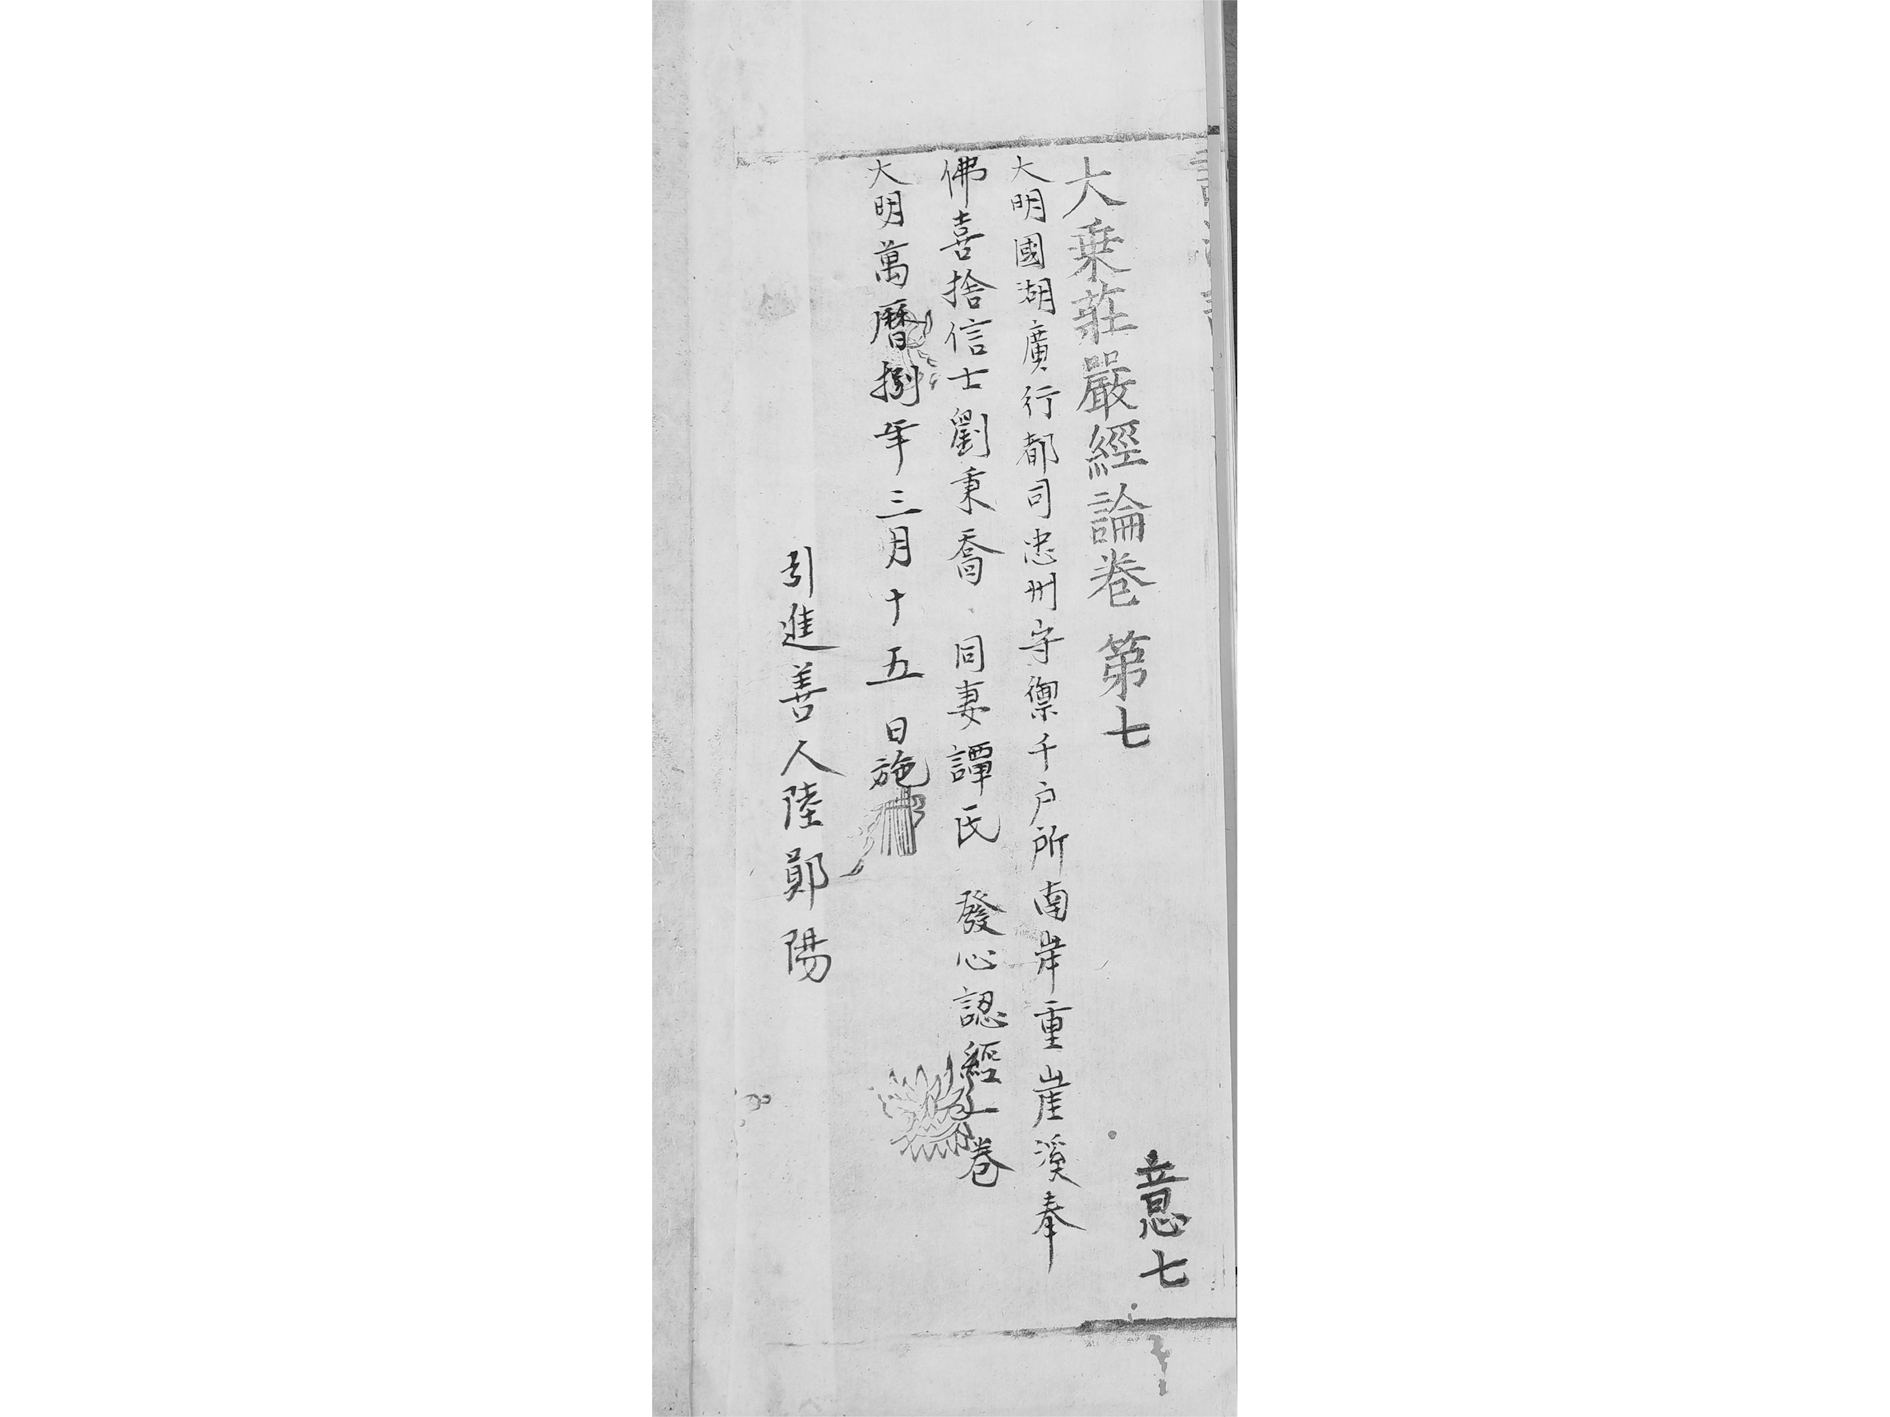 大乗莊嚴經論卷第七
意七
大明國湖廣行都司忠州守禦千户所南岸重崖溪奉
佛喜捨信士劉秉喬同妻譚氏發心認經一卷
大明萬曆捌年三月十五日施
引進善人陸鄖陽